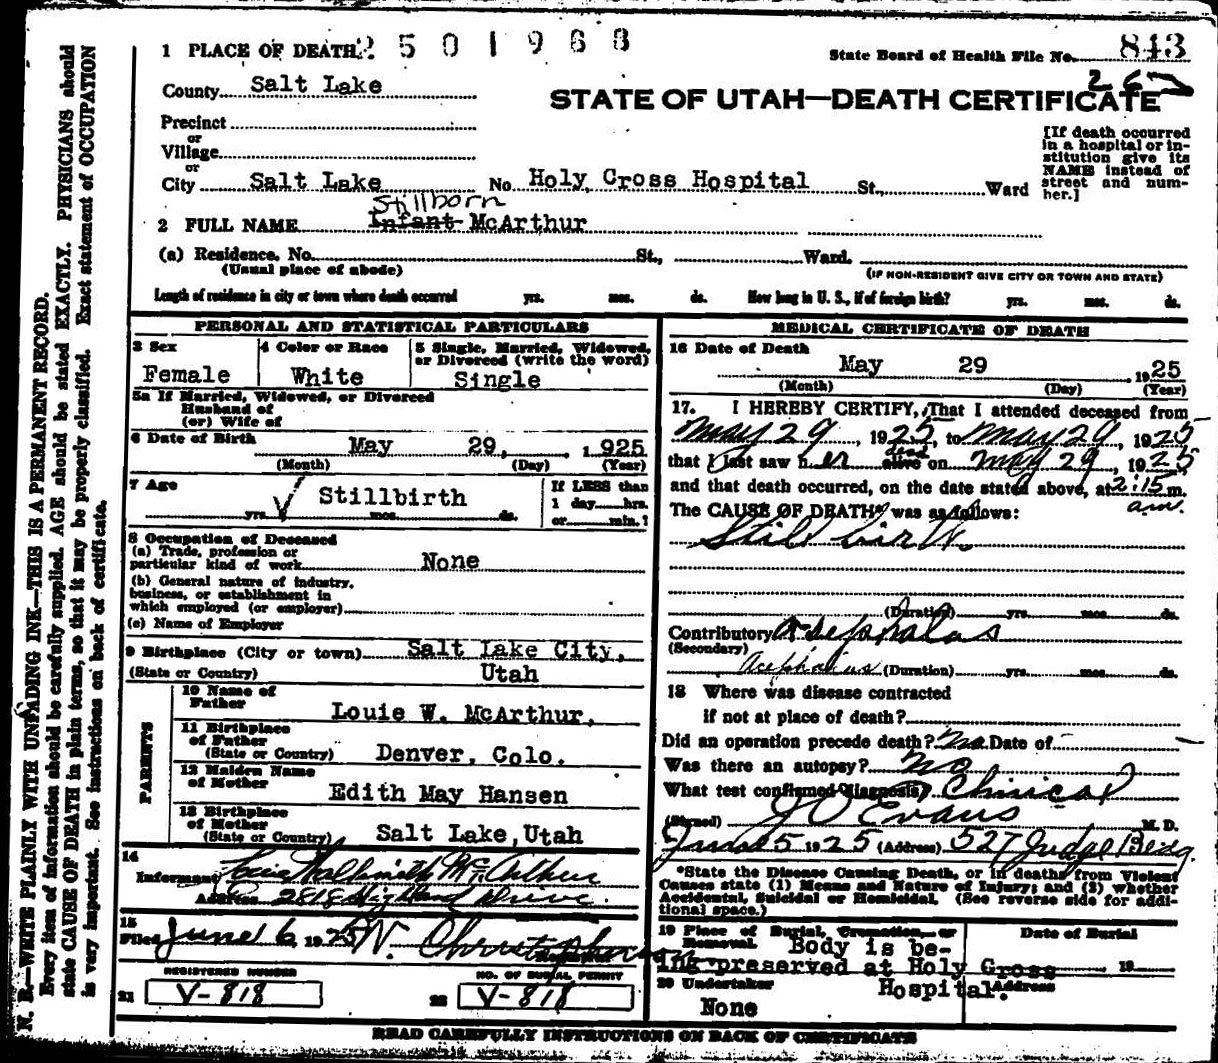 1 PLACE OF DEATH 2501988
State Board of Health File No. 843
County Salt Lake
267
STATE OF UTAH—DEATH CERTIFICATE
Precinct
or
Village
or
City Salt Lake No Holy Cross Hospital St., Ward
[If death occurred
in a hospital or in-
stitution give its
NAME instead of
street and num-
ber.]
Stillborn
2 FULL NAME Infant McArthur
(a) Residence. No. St., Ward.
(Usual place of abode) (IF NON-RESIDENT GIVE CITY OR TOWN AND STATE)
Length of residence in city or town where death occurred yrs. mos. ds. How long in U. S., if of foreign birth? yrs. mos. ds.
PERSONAL AND STATISTICAL PARTICULARS
3 Sex
Female
4 Color or Race
White
5 Single, Married, Widowed,
or Divorced (write the word)
Single
5a If Married, Widowed, or Divorced
Husband of
(or) Wife of
6 Date of Birth May 29, 1925
(Month) (Day) (Year)
7 Age Stillbirth
yrs. mos. ds.
If LESS than
1 day hrs.
or min.?
8 Occupation of Deceased
(a) Trade, profession or
particular kind of work None
(b) General nature of industry,
business, or establishment in
which employed (or employer)
(c) Name of Employer
9 Birthplace (City or town) Salt Lake City,
(State or Country) Utah
PARENTS
10 Name of
Father Louie W. McArthur,
11 Birthplace
of Father
(State or Country) Denver, Colo.
12 Maiden Name
of Mother Edith May Hansen
13 Birthplace
of Mother
(State or Country) Salt Lake, Utah
14
Informant McArthur
Address 2818 Highland Drive.
15
Filed June 6, 1925 W. Christopherson
REGISTERED NUMBER
21 V-818
NO. OF BURIAL PERMIT
22 V-818
MEDICAL CERTIFICATE OF DEATH
16 Date of Death
May 29 1925
(Month) (Day) (Year)
17. I HEREBY CERTIFY, That I attended deceased from
May 29, 1925, to May 29, 1925
dead
that I last saw her alive on May 29, 1925
and that death occurred, on the date stated above, at 2:15 m.
am.
The CAUSE OF DEATH* was as follows:
Still birth.
(Duration) yrs. mos. ds.
Contributory
(Secondary)
Acephalus (Duration) yrs. mos. ds.
18 Where was disease contracted
if not at place of death?
Did an operation precede death? No. Date of —
Was there an autopsy? no
What test confirmed diagnosis? Clinical
(Signed) J O Evans M. D.
June 5 1925 (Address) 527 Judge Bldg.
*State the Disease Causing Death, or in deaths from Violent
Causes state (1) Means and Nature of Injury; and (2) whether
Accidental, Suicidal or Homicidal. (See reverse side for addi-
tional space.)
19 Place of Burial, Cremation, or
Removal. Body is be-
ing preserved at Holy Cross
Hospital.
Date of Burial
19
20 Undertaker
None
Address
READ CAREFULLY INSTRUCTIONS ON BACK OF CERTIFICATE
N. B.—WRITE PLAINLY WITH UNFADING INK—THIS IS A PERMANENT RECORD.
Every item of information should be carefully supplied. AGE should be stated EXACTLY. PHYSICIANS should
state CAUSE OF DEATH in plain terms, so that it may be properly classified. Exact statement of OCCUPATION
is very important. See instructions on back of certificate.